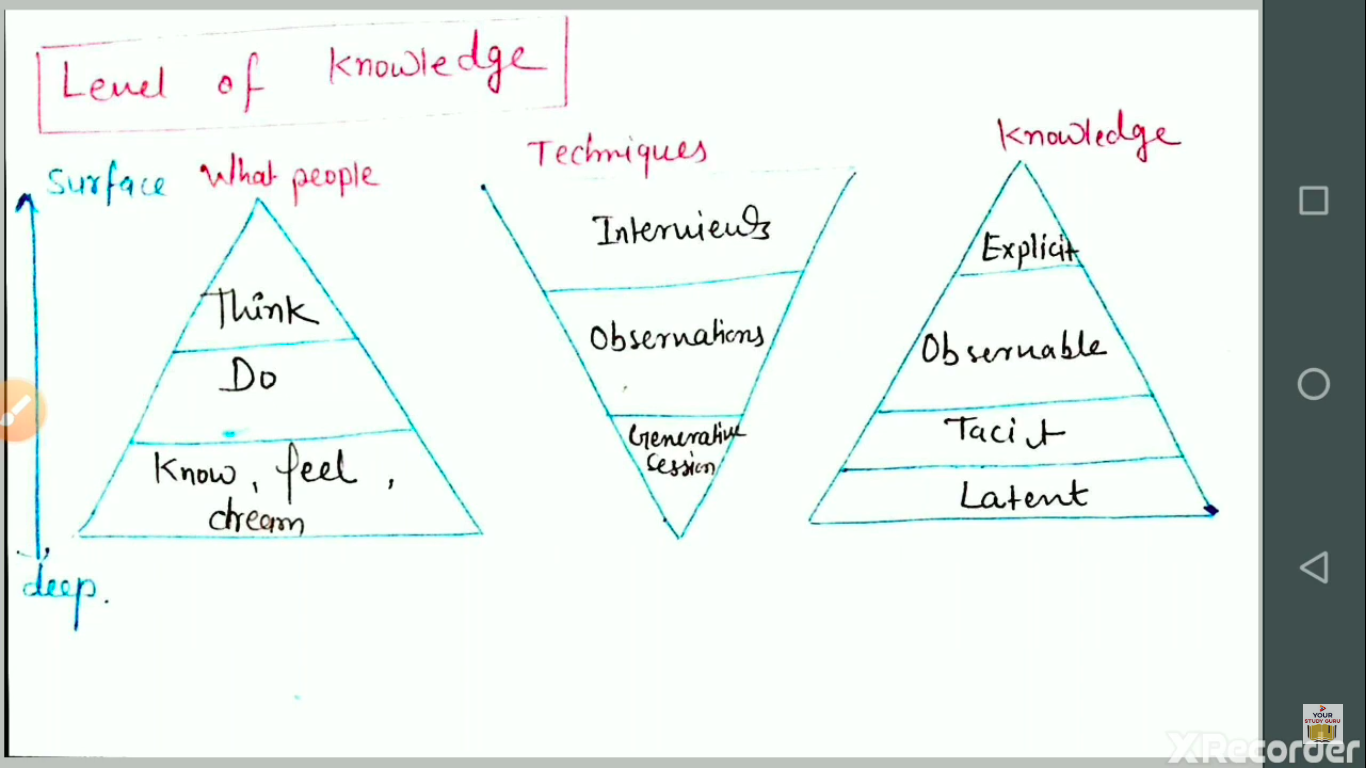 Level of Knowledge
Surface
What people
Think
Do
Know, feel,
dream
deep.
Techniques
Interviews
Observations
Generative
Session
Knowledge
Explicit
Observable
Tacit
Latent
YOUR
STUDY GURU
XRecorder